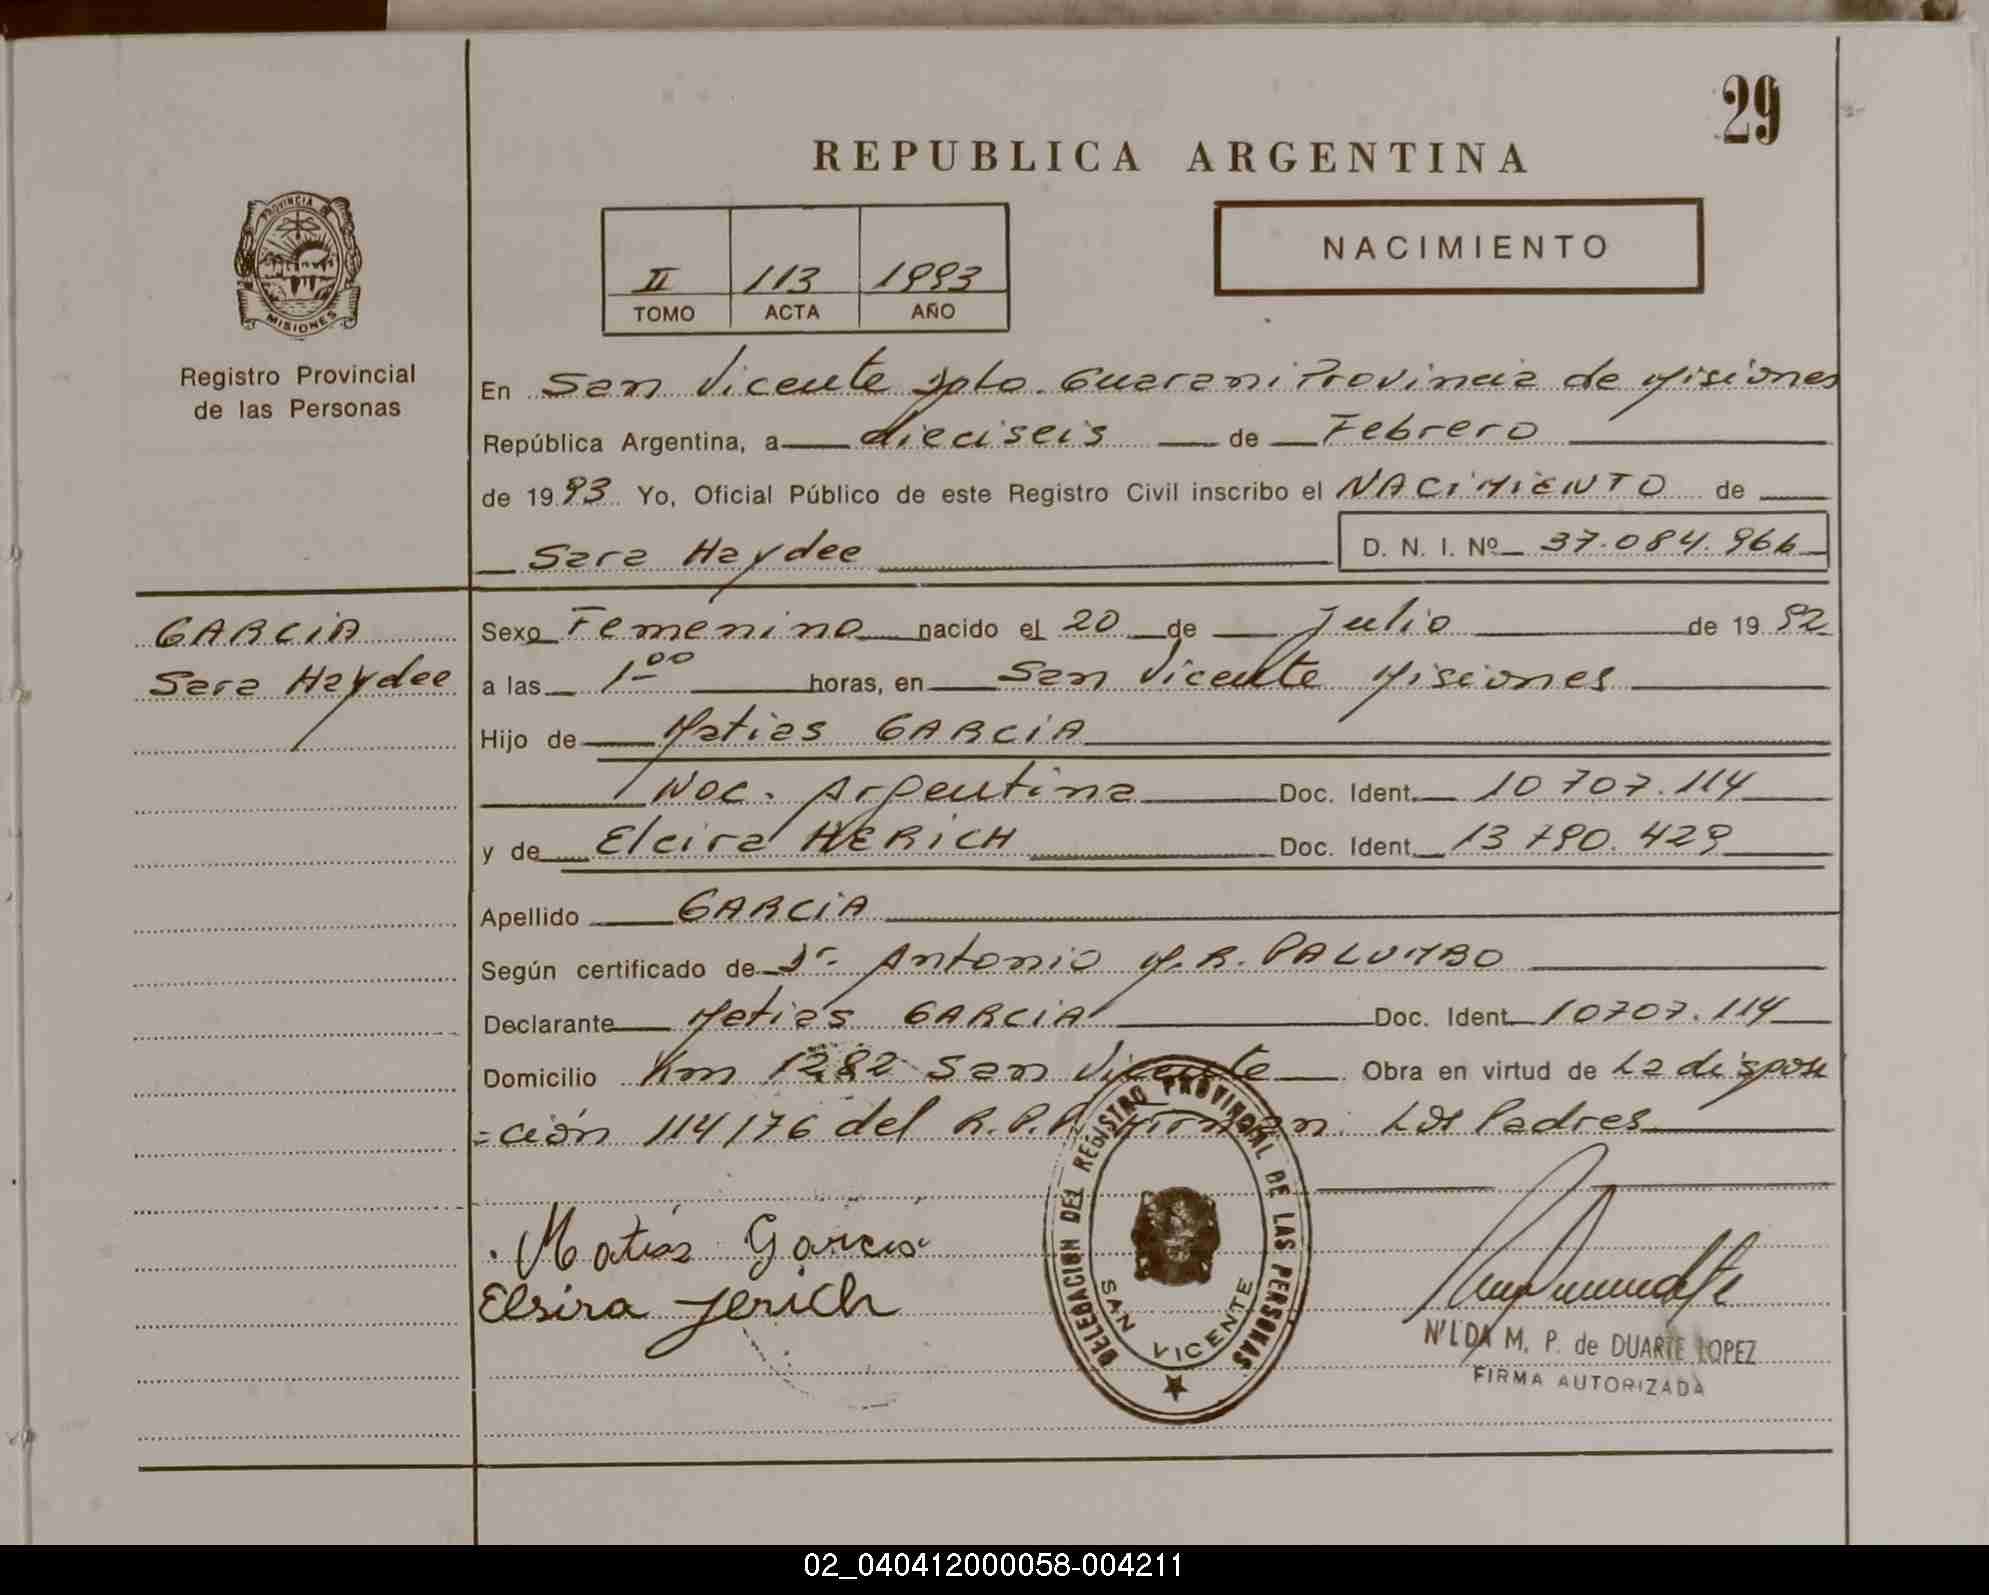 29
REPUBLICA ARGENTINA
PROVINCIA DE
MISIONES
Registro Provincial
de las Personas
II 113 1993
TOMO ACTA AÑO
NACIMIENTO
En San Vicente Dpto. Guarani Provincia de Misiones
República Argentina, a dieciseis de Febrero
de 1993 Yo, Oficial Público de este Registro Civil inscribo el NACIMIENTO de
Sara Haydee D. N. I. Nº 37.084.966
GARCIA
Sara Haydee
Sexo Femenino nacido el 20 de Julio de 1992
a las 100 horas, en San Vicente Misiones
Hijo de Matias GARCIA
Nac. Argentina Doc. Ident. 10 707.114
y de Elcira HERICH Doc. Ident. 13 790.429
Apellido GARCIA
Según certificado de Dr. Antonio M.R. PALUMBO
Declarante Matias GARCIA Doc. Ident. 10707.114
Domicilio Km 1282 San Vicente Obra en virtud de La disposi
=ción 114/76 del R.P.P. Firman: Los Padres
Matias Garcia
Elsira Jerich
DELEGACION DEL REGISTRO PROVINCIAL DE LAS PERSONAS
SAN VICENTE
NILDA M. P. de DUARTE LOPEZ
FIRMA AUTORIZADA
02_040412000058-004211